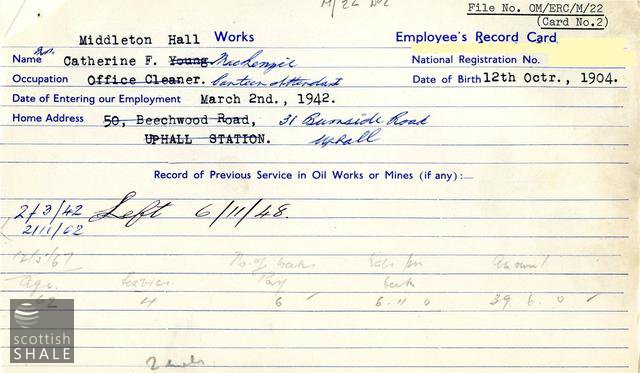 M/22 No 2
File No. OM/ERC/M/22
(Card No.2)
Middleton Hall Works Employee's Record Card
Mrs. Name Catherine F. Young. Mackenzie National Registration No.
Occupation Office Cleaner. Canteen Attendant Date of Birth 12th Octr., 1904.
Date of Entering our Employment March 2nd., 1942.
Home Address 50, Beechwood Road, 31 Burnside Road
UPHALL STATION. Uphall
Record of Previous Service in Oil Works or Mines (if any):—
2/3/42 Left 6/11/48.
2/11/62
12/5/67 No. of weeks Rate per Amount
Age. Service Pay week
62 4 6 6. 11 0 39. 6. 0
scottish
SHALE
2 weeks